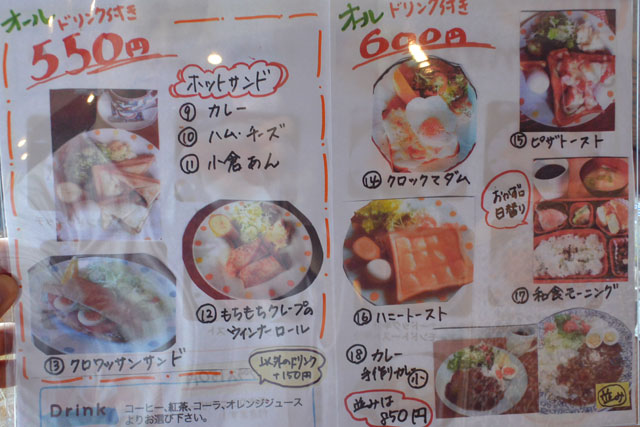 オール ドリンク付き
550円
ホットサンド
⑨ カレー
⑩ ハム・チーズ
⑪ 小倉あん
⑫ もちもちクレープの
ウィンナーロール
⑬ クロワッサンサンド
以外のドリンク
+150円
Drink
コーヒー、紅茶、コーラ、オレンジジュース
よりお選び下さい。
オール ドリンク付き
600円
⑭ クロックマダム
⑮ ピザトースト
⑯ ハニートースト
おかず
日替り
⑰ 和食モーニング
⑱ カレー
手作りカレー 小
並みは
850円
並み